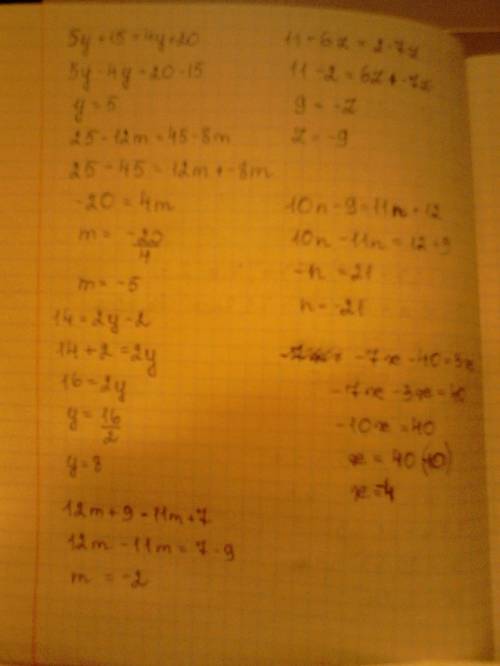 5y + 15 = 4y + 20
5y - 4y = 20 - 15
y = 5
25 - 12m = 45 - 8m
25 - 45 = 12m + -8m
-20 = 4m
m = -20/4
m = -5
14 = 2y - 2
14 + 2 = 2y
16 = 2y
y = 16/2
y = 8
12m + 9 = 11m + 7
12m - 11m = 7 - 9
m = -2
11 - 6z = 2 - 7z
11 - 2 = 6z + -7z
9 = -z
z = -9
10n - 9 = 11n + 12
10n - 11n = 12 + 9
-n = 21
n = -21
-7x - 40 = 3x
-7x - 3x = 40
-10x = 40
x = 40 (-10)
x = -4